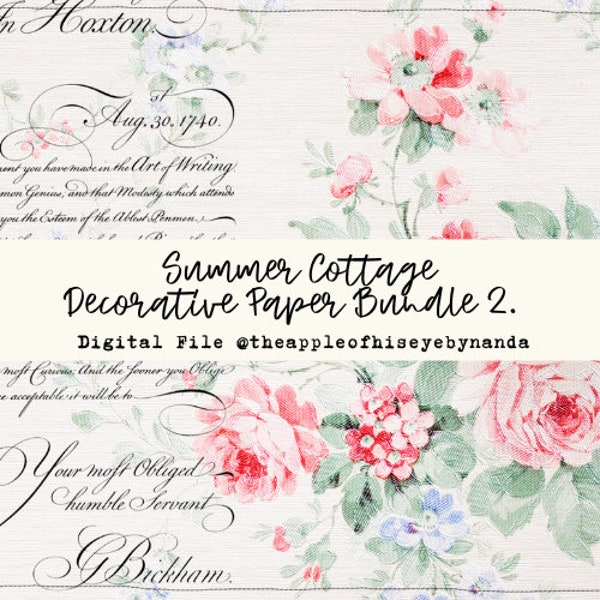 In Hoxton.
st
Aug. 30. 1740.
ent you have made in the Art of Writing
mon Genius; and that Modesty which attends
you the Esteem of the Ablest Penmen.
Summer Cottage
Decorative Paper Bundle 2.
Digital File @theappleofhiseyebynanda
most Curious: And the sooner you Oblige
e acceptable it will be to
Your most Obliged
humble Servant
G Bickham.